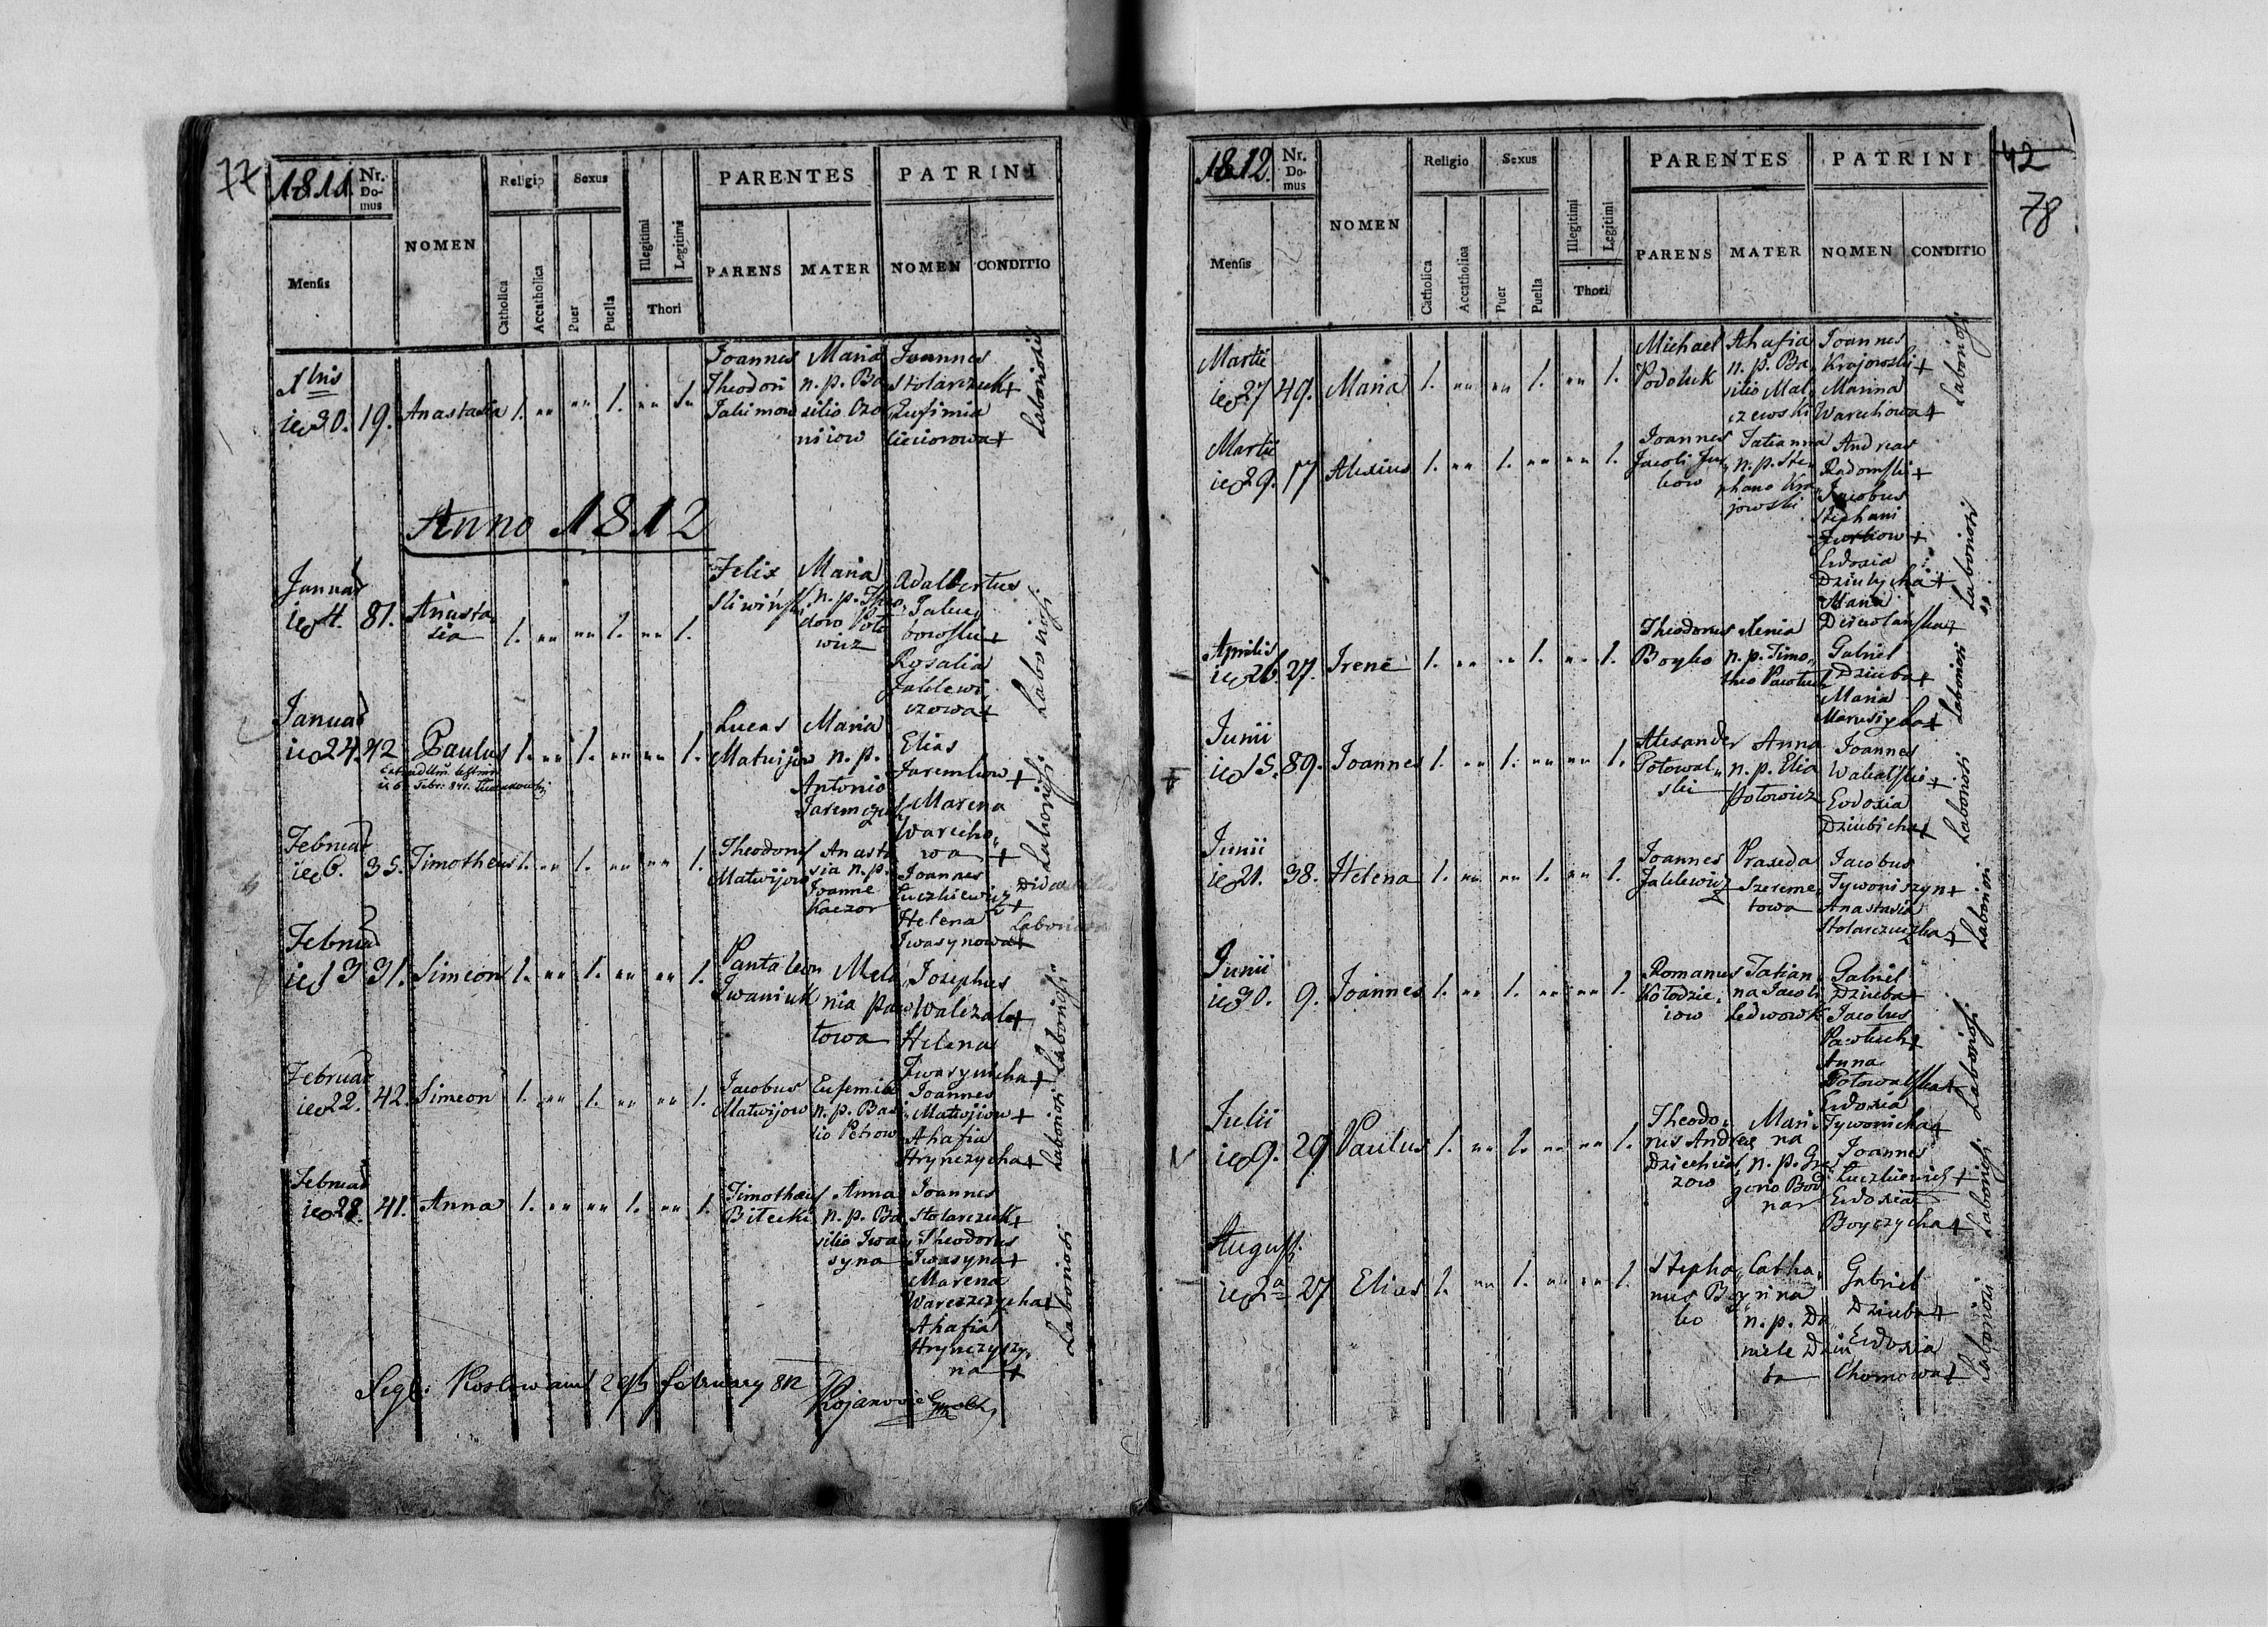 77
1811
Nr. Domus
NOMEN
Religio
Sexus
PARENTES
PATRINI
Mensis
Catholica
Accatholica
Puer
Puella
Illegitimi
Legitimi
Thori
PARENS
MATER
NOMEN
CONDITIO
Xbris
30. 19. Anastasia 1. 1. 1.
Joannes
Theodori
Maria
n. p. Ba
silio Czo
niiow
Joannes
Stolarczuk +
Eufimia
Laboriosi
Anno 1812
Januar
4. 81. Anasta
sia 1. 1. 1.
Felix
Sliwiński
Maria
n. p. Theo
doro Poto
wicz
Adalbertus
Rosalia
Jaklewi
czowa +
Laboriosi
Januar
24. 42 Paulus 1. 1. 1.
Lucas
Matwijow
Maria
n. p.
Antonio
Jaremczuk
Elias
Jaremkow +
Marena
Warecho
wa +
Laboriosi
Februar
6. 35. Timotheus 1. 1. 1.
Theodorus
Matwijow
Anasta
sia n. p.
Joanne
Kaczor
Joannes
Luczkiewicz +
Helena
Iwasynowa +
Februar
13 31. Simeon 1. 1. 1.
Pantaleon
Iwaniuk
Mela
nia Paw
towa
Josephus
Walczak +
Helena
Iwasyncha +
Laboriosi
Februar
22. 42. Simeon 1. 1. 1.
Jacobus
Matwijow
Eufemia
n. p. Basi
lio Petrow
Joannes
Matwijow +
Ahafia
Hrynczycha +
Laboriosi
Februar
28. 41. Anna 1. 1. 1.
Timotheus
Bilecki
Anna
n. p. Ba
silio Iwa
syna
Joannes
Stolarczuk +
Theodorus
Iwasyna +
Marena
Warezczycha +
Ahafia
Hrynczyszy
na +
Laboriosi
february 812
42
78
1812.
Nr. Domus
NOMEN
Religio
Sexus
PARENTES
PATRINI
Mensis
Catholica
Accatholica
Puer
Puella
Illegitimi
Legitimi
Thori
PARENS
MATER
NOMEN
CONDITIO
Martii
27 49. Maria 1. 1. 1.
Michael
Podoluk
Ahafia
n. p. Ba
silio Mal
czewski
Joannes
Krajowski +
Marina
Warechowa +
Laboriosi
Martii
29. 17 Alexius 1. 1. 1.
Joannes
Jacobi Jur
kow
Tatianna
n. p. Ste
phano Kra
jowski
Andreas
Radomski +
Jacobus
Stephani
Jurkow +
Eudoxia
Dziubycha +
Maria
Laboriosi
Aprilis
26. 27. Irene 1. 1. 1.
Theodorus
Boyko
Xenia
n. p. Timo
theo Pawluch
Gabriel
Dziuba +
Maria
Marusiycha +
Laboriosi
Junii
15. 89. Joannes 1. 1. 1.
Alexander
Potowal
ski
Anna
n. p. Elia
Potowicz
Joannes
Walcalski +
Eudoxia
Dziubicha +
Laboriosi
Junii
21. 38. Helena 1. 1. 1.
Joannes
Jaklewicz
Praxeda
Szereme
towa
Jacobus
Tywoniszyn +
Anastasia
Stolarczuczka +
Laboriosi
Junii
30. 9. Joannes 1. 1. 1.
Romanus
Kołodzie
iow
Tatian
na Jacobi
Ledwowsk
Gabriel
Dziuba +
Jacobus
Pawluch +
Anna
Potowalska +
Eudoxia
Tywonicha +
Laboriosi
Julii
9. 29 Paulus 1. 1. 1.
Theodo
rus Andreae
Mari
na
n. p. Gre
gorio Bod
nar
Joannes
Luczkiewicz +
Eudoxia
Boyczycha +
Laboriosi
August.
2a 27 Elias 1. 1. 1.
Stepha
nus Boy
ko
Catha
rina
n. p. Da
niele Dziu
ba
Gabriel
Dziuba +
Eudoxia
Chomowa +
Laboriosi